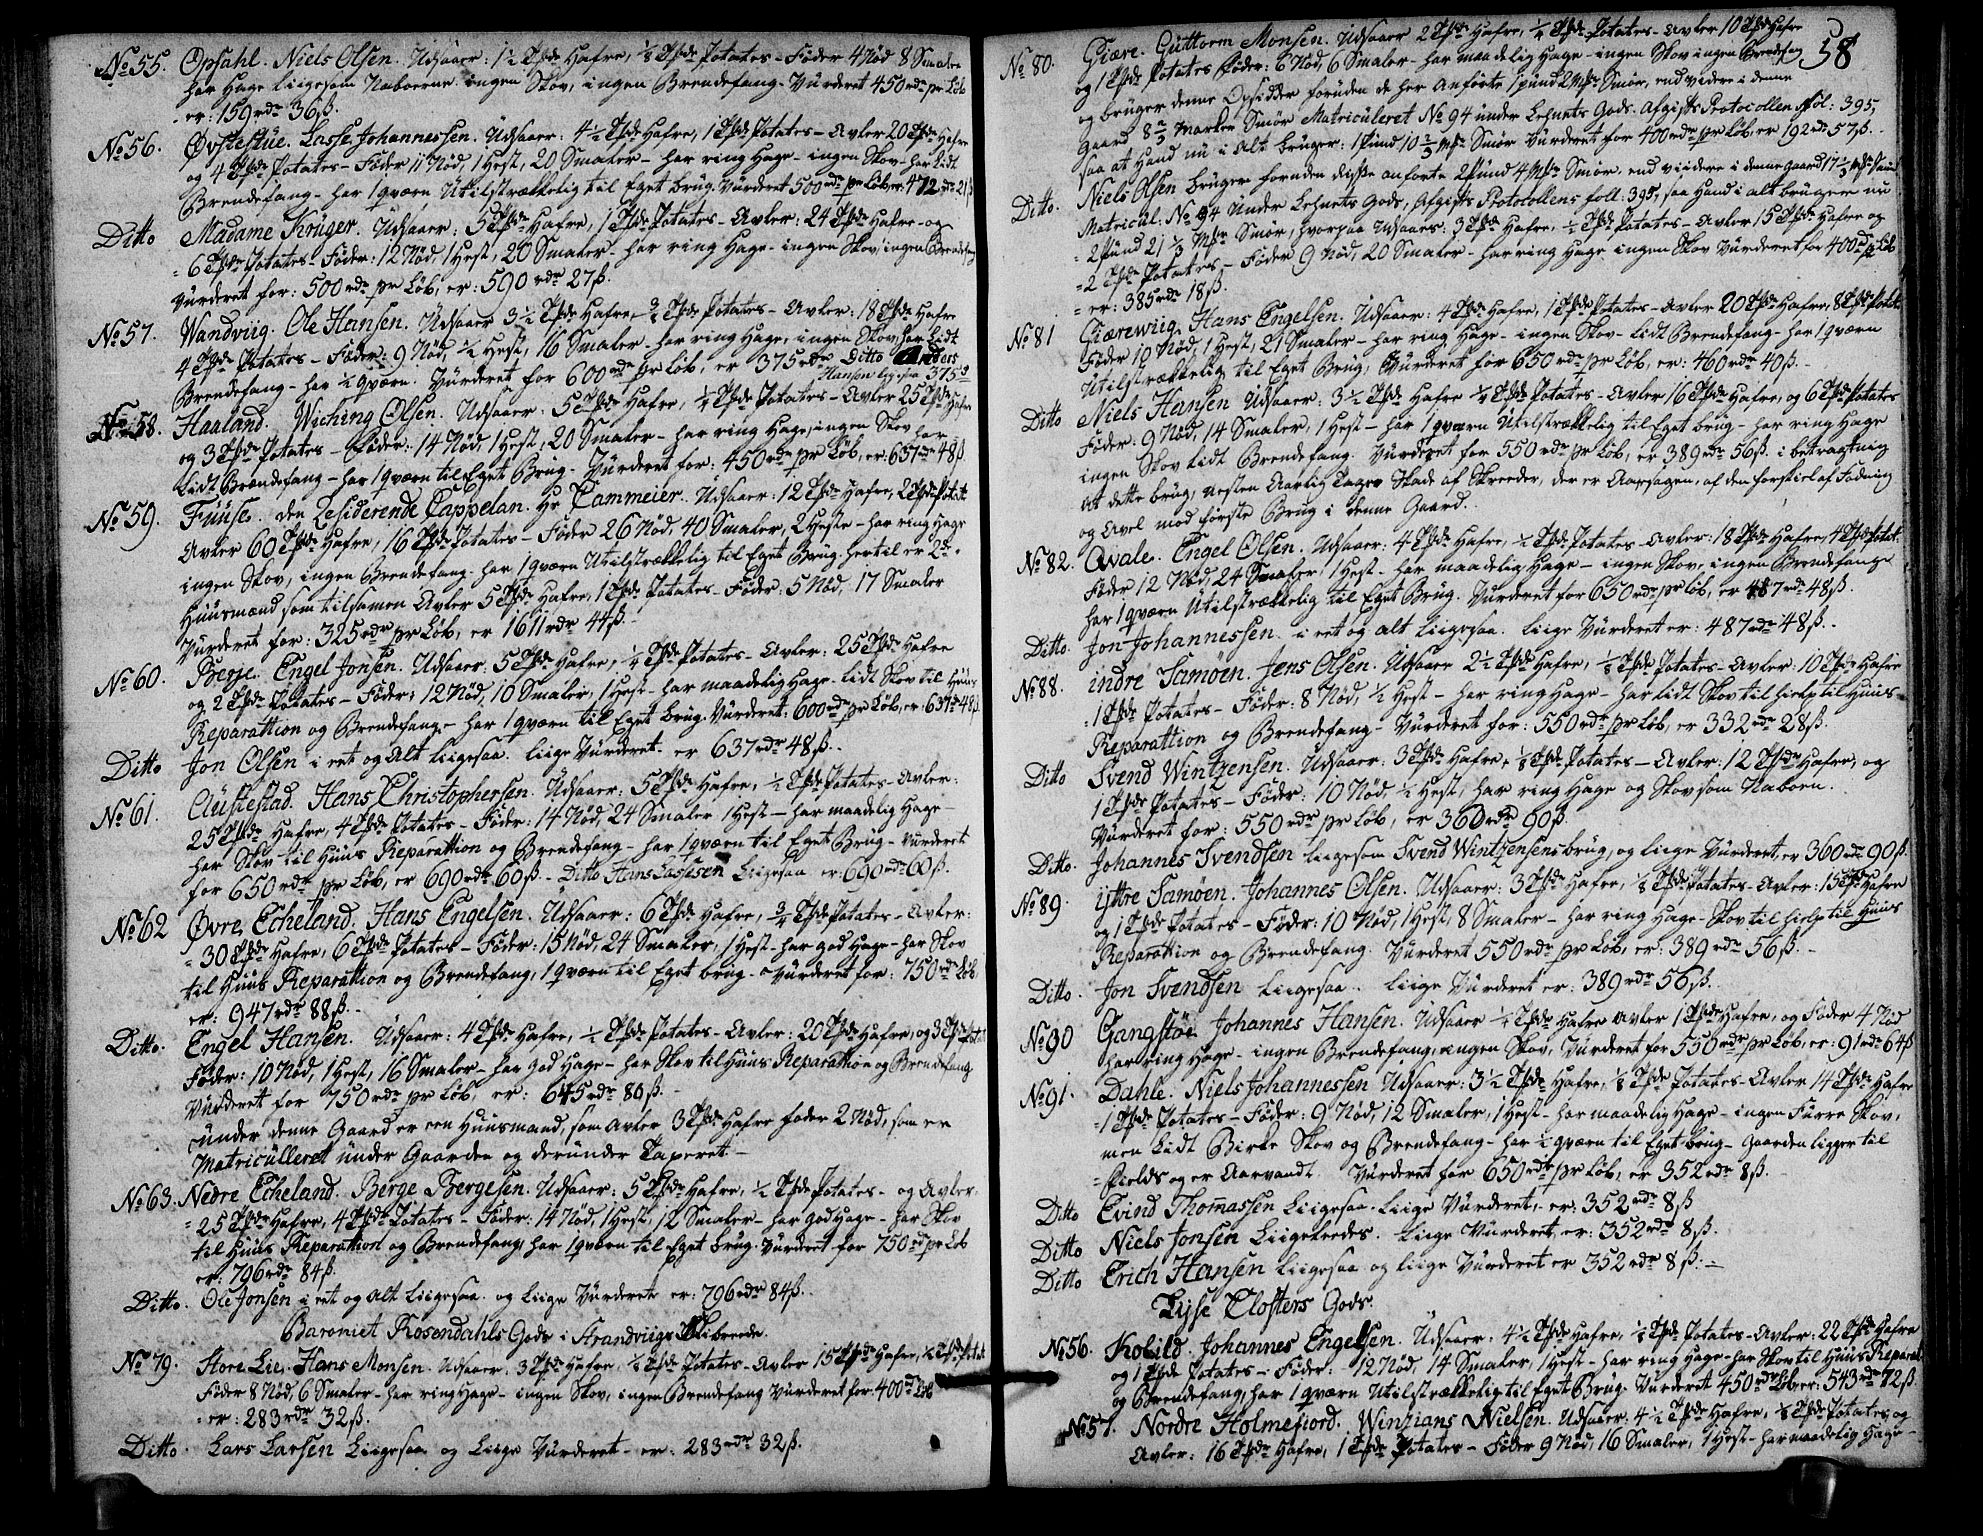 No 55. Opsahl. Niels Olsen. Udsaaer: 1½ Tønde Hafre, ⅛ Tønde Potates – Føder 4 Nød 8 Smaler
har Hage liigesom Naboerne. ingen Skov, ingen Brendefang. Vurderet 450 rdr pr Løb
er: 159 rdr 36 ß.
No 56. Øvstestue. Lasse Johannessen. Udsaaer: 4½ Tønde Hafre, 1 Tønde Potates – Avler 20 Tønde Hafre
og 4 Tønde Potates – Føder 11 Nød, 1 Hest, 20 Smaler – har ring Hage – ingen Skov – har Lidt
Brendefang – har 1 qværn Utilstrækkelig til Eget brug. Vurderet 500 rdr pr Løb, er: 472 rdr 21 ß
Ditto Madame Krüger. Udsaaer: 5 Tønde Hafre, 1 Tønde Potates – Avler: 24 Tønde Hafre – og
6 Tønde Potates – Føder: 12 Nød 1 Hest, 20 Smaler – har ring Hage – ingen Skov, ingen Brendefang
Vurderet for: 500 rdr pr Løb, er: 590 rdr 27 ß.
No 57. Wandviig. Ole Hansen. Udsaaer 3½ Tønde Hafre, ¾ Tønde Potates – Avler: 18 Tønde Hafre
4 Tønde Potates – Føder: 9 Nød, ½ Hest, 16 Smaler – har ring Hage, ingen Skov, har Lidt
Brendefang – har ½ qværn. Vurderet for 600 rdr pr Løb, er 375 rdr Ditto Anders
Hansen 375
No 58. Haaland. Wiching Olsen. Udsaaer: 5 Tønde Hafre, ¼ Tønde Potates – Avler 25 Tønde Hafre
og 3 Tønde Potates – Føder: 14 Nød, 1 Hest, 20 Smaler – har ring Hage, ingen Skov har
Lidt Brændefang – har 1 qværn til Eget Brug – Vurderet for: 450 rdr pr Løb, er: 637 rdr 48 ß
No 59. Fuuse. den Residerende Cappelan. Hr Tammeier. Udsaaer: 12 Tønde Hafre, 2 Tønde Potates
Avler 60 Tønde Hafre, 16 Tønde Potates – Føder 26 Nød, 40 Smaler, 2 Heste – har ring Hage
ingen Skov, ingen Brendefang. har 1 qværn Utilstrækkelig til Eget Brug. hertil er 2de
Huusmænd som tilsamen Avler 5 Tønde Hafre, 1 Tønde Potates – Føder: 5 Nød, 17 Smaler
Vurderet for: 325 rdr pr Løb, er 1611 rdr 44 ß.
No 60. Berje. Engel Jonsen. Udsaaer 5 Tønde Hafre, ¼ Tønde Potates – Avler: 25 Tønde Hafre
og 2 Tønde Potates – Føder: 12 Nød, 10 Smaler, 1 Hest – har maadelig Hage – lidt Skov til Huus
Reparattion og Brendefang – har 1 qværn til Eget brug. Vurderet: 600 rdr pr Løb, er: 637 rdr 48 ß
Ditto Jon Olsen i eet og Alt Liigesaa. liige Vurderet – er 637 rdr 48 ß.
No 61. Clustestad. Hans Christophersen. Udsaaer: 5 Tønde Hafre, ½ Tønde Potates – Avler:
25 Tønde Hafre, 4 Tønde Potates – Føder: 14 Nød, 24 Smaler 1 Hest – har maadelig Hage –
har Skov til Huus Reparattion og Brendefang – har 1 qværn til Eget Brug – Vurderet
for 650 rdr pr Løb, er 690 rdr 60 ß – Ditto Hans Lassesen Liigesaa er: 690 rdr 60 ß.
No 62 Øvre Echeland. Hans Engelsen. Udsaaer: 6 Tønde Hafre, ¾ Tønde Potates – Avler:
30 Tønde Hafre, 6 Tønde Potates – Føder: 15 Nød, 24 Smaler, 1 Hest – har god Hage – har Skov
til Huus Reparattion og Brendefang, 1 qværn til Eget brug – Vurderet for: 750 rdr pr Løb
er: 947 rdr 88 ß.
Ditto. Engel Hansen. Udsaaer: 4 Tønde Hafre, ½ Tønde Potates – Avler: 20 Tønde Hafre, og 3 Tønde Potates
Føder: 10 Nød, 1 Hest, 16 Smaler – har god Hage – har Skov til Huus Reparattion og Brendefang
Vurderet for 750 rdr pr Løb, er: 645 rdr 80 ß.
under denne Gaard er een Huusmand, som avler 3 Tønde Hafre føder 2 Nød, som er
Matriculleret under Gaarden og derunder Taxeret –
No 63. Nedre Echeland. Børge Børgesen. Udsaaer: 5 Tønde Hafre, ½ Tønde Potates – og Avler:
25 Tønde Hafre, 4 Tønde Potates – Føder: 14 Nød, 1 Hest, 12 Smaler – har god Hage – har Skov
til Huus Reparattion og Brendefang, har 1 qværn til Eget brug. Vurderet for 750 rdr pr Løb
er: 796 rdr 84 ß.
Ditto. Ole Jonsen i eet og Alt Liigesaa. og Liige Vurderet er: 796 rdr 84 ß.
Baroniet Rosendahls Gods i Strandviigs Skibreede.
No 79. Store Lie. Hans Monsen. Udsaaer. 3 Tønde Hafre, ⅛ Tønde Potates – Avler 15 Tønde Hafre, ½ Tønde Potates
Føder 8 Nød, 6 Smaler – har ring Hage – ingen Skov, ingen Brendefang Vurderet for 400 rdr pr Løb
er: 283 rdr 32 ß.
Ditto. Lars Larsen Liigesaa og Liige Vurderet – er: 283 rdr 32 ß.
58
No 80. Giære. Guttorm Monsen. Udsaaer 2 Tønde Hafre, ¼ Tønde Potates – Avler 10 Tønde Hafre
og 1 Tønde Potates Føder: 6 Nød, 6 Smaler – har maadelig Hage – ingen Skov ingen Brendefang
og bruger denne Opsidder foruden de her Anførte 1 pund 2 Mrk Smør, end videre i denne
Gaard 8⅔ Marker Smør Matriculeret No 94 under Lehnets Gods. Afgifts Protocollen fol: 395,
saa at Hand nu i Alt bruger: 1 Pund 10⅔ Mrk Smør Vurderet for 400 rdr pr Løb, er 192 rdr 57 ß.
Ditto. Niels Olsen bruger foruden disse anførte 2 Pund 4 Mrk Smør. end viidere i denne Gaard 17⅓ Mrk Smør
Matricul: No 94 Under Lehnets Gods, Afgifts Protocollens foll: 395, saa Hand i alt bruger nu
2 Pund 21⅓ Mrk Smør, hvorpaa Udsaaes: 3 Tønde Hafre, ½ Tønde Potates – Avler 15 Tønde Hafre og
2 Tønde Potates – Føder 9 Nød, 20 Smaler – har ring Hage ingen Skov Vurderet for 400 rdr pr Løb
er: 385 rdr 18 ß.
No 81 Giærewiig. Hans Engelsen. Udsaaer: 4 Tønde Hafre, 1 Tønde Potates – Avler 20 Tønde Hafre, 8 Tønde Potates
Føder 10 Nød, 1 Hest, 21 Smaler – har ring Hage – ingen Skov – lidt Brendefang – har 1 qværn
Utilstrækkelig til Eget Brug, Vurderet for 650 rdr pr Løb, er: 460 rdr 40 ß.
Ditto Niels Hansen Udsaaer: 3½ Tønde Hafre ¼ Tønde Potates – Avler 16 Tønde Hafre, og 6 Tønde Potates
Føder: 9 Nød, 14 Smaler, 1 Hest – har 1 qværn Utilstrækkelig til Eget brug – har ring Hage
ingen Skov lidt Brendefang. Vurderet for 550 rdr pr Løb, er 389 rdr 56 ß. i betragtning
At dette brug, nesten Aarlig Tager Skade af Skreeder, der er Aarsagen, af den forskiel af Fødning
og Avel mod første Brug i denne Gaard.
No 82. Qvale. Engel Olsen. Udsaaer: 4 Tønde Hafre, ½ Tønde Potates – Avler: 18 Tønde Hafre, 4 Tønde Potates
Føder 12 Nød, 24 Smaler, 1 Hest – har maadelig Hage – ingen Skov, ingen Brendefang
har 1 qværn Utilstrækkelig til Eget Brug. Vurderet for 650 rdr pr Løb, er 487 rdr 48 ß.
Ditto. Jon Johannessen. i eet og alt Liigesaa. Liige Vurderet er: 487 rdr 48 ß.
No 88. indre Samøen. Jens Olsen. Udsaaer 2½ Tønde Hafre, ⅛ Tønde Potates – Avler: 10 Tønde Hafre
1 Tønde Potates – Føder: 8 Nød, ½ Hest – har ring Hage – har lidt Skov til hielp til Huus
Reparattion og Brendefang – Vurderet for: 550 rdr pr Løb, er 332 rdr 28 ß.
Ditto Svend Wintzensen. Udsaaer: 3 Tønde Hafre, ⅛ Tønde Potates – Avler: 12 Tønde Hafre, og
1 Tønde Potates – Føder: 10 Nød ½ Hest, har ring Hage og Skov som Naboen.
Vurderet for: 550 rdr pr Løb, er 360 rdr 90 ß.
Ditto. Johannes Svendsen liigesom Svend Wintzensens brug, og liige Vurderet, er 360 rdr 90 ß.
No 89. ijttre Samøen. Johannes Olsen. Udsaaer: 3 Tønde Hafre, ⅛ Tønde Potates – Avler: 15 Tønde Hafre
og 1 Tønde Potates – Føder: 10 Nød, 1 Hest, 8 Smaler – har ring Hage – Skov til hielp til Huus
Reparattion og Brendefang. Vurderet 550 rdr pr Løb, er: 389 rdr 56 ß.
Ditto. Jon Svendsen Liigesaa. Liige Vurderet er: 389 rdr 56 ß.
No 90 Gangstøe Johannes Hansen. Udsaaer ¼ Tønde Hafre Avler 1 Tønde Hafre, og Føder 4 Nød
har ring Hage – ingen Brendefang, ingen Skov, Vurderet for 550 rdr pr Løb, er: 91 rdr 64 ß
No 91. Dahle. Niels Johannessen Udsaaer: 3½ Tønde Hafre, ⅛ Tønde Potates – Avler 14 Tønde Hafre
1 Tønde Potates – Føder: 9 Nød, 12 Smaler, 1 Hest – har maadelig Hage – ingen Furre Skov,
men Lidt Birke Skov og Brendefang – har ½ qværn til Eget brug – Gaarden ligger til
Fields og er Aarvandt. Vurderet for 650 rdr pr Løb, er 352 rdr 8 ß.
Ditto Evind Thomassen Liigesaa. Liige Vurderet, er: 352 rdr 8 ß
Ditto Niels Jonsen Liigeledes. Liige Vurderet, er: 352 rdr 8 ß.
Ditto Erich Hansen Liigesaa og liige Vurderet er 352 rdr 8 ß.
Lyse Closters Gods.
No 56. Kolild. Johannes Engelsen. Udsaaer: 4½ Tønde Hafre, ⅛ Tønde Potates – Avler: 22 Tønde Hafre
og 1 Tønde Potates – Føder: 12 Nød, 14 Smaler, 1 Hest – har ring Hage – har Skov til Huus Reparat
og Brendefang, har 1 qværn Utilstrækkelig til Eget Brug. Vurderet 450 rdr Løb er: 543 rdr 72 ß.
No 57. Nordre Holmefiord. Wintzians Nielsen. Udsaaer: 4½ Tønde Hafre, ⅛ Tønde Potates og
Avler: 16 Tønde Hafre, 1 Tønde Potates – Føder 9 Nød, 16 Smaler, 1 Hest – har maadelig Hage –